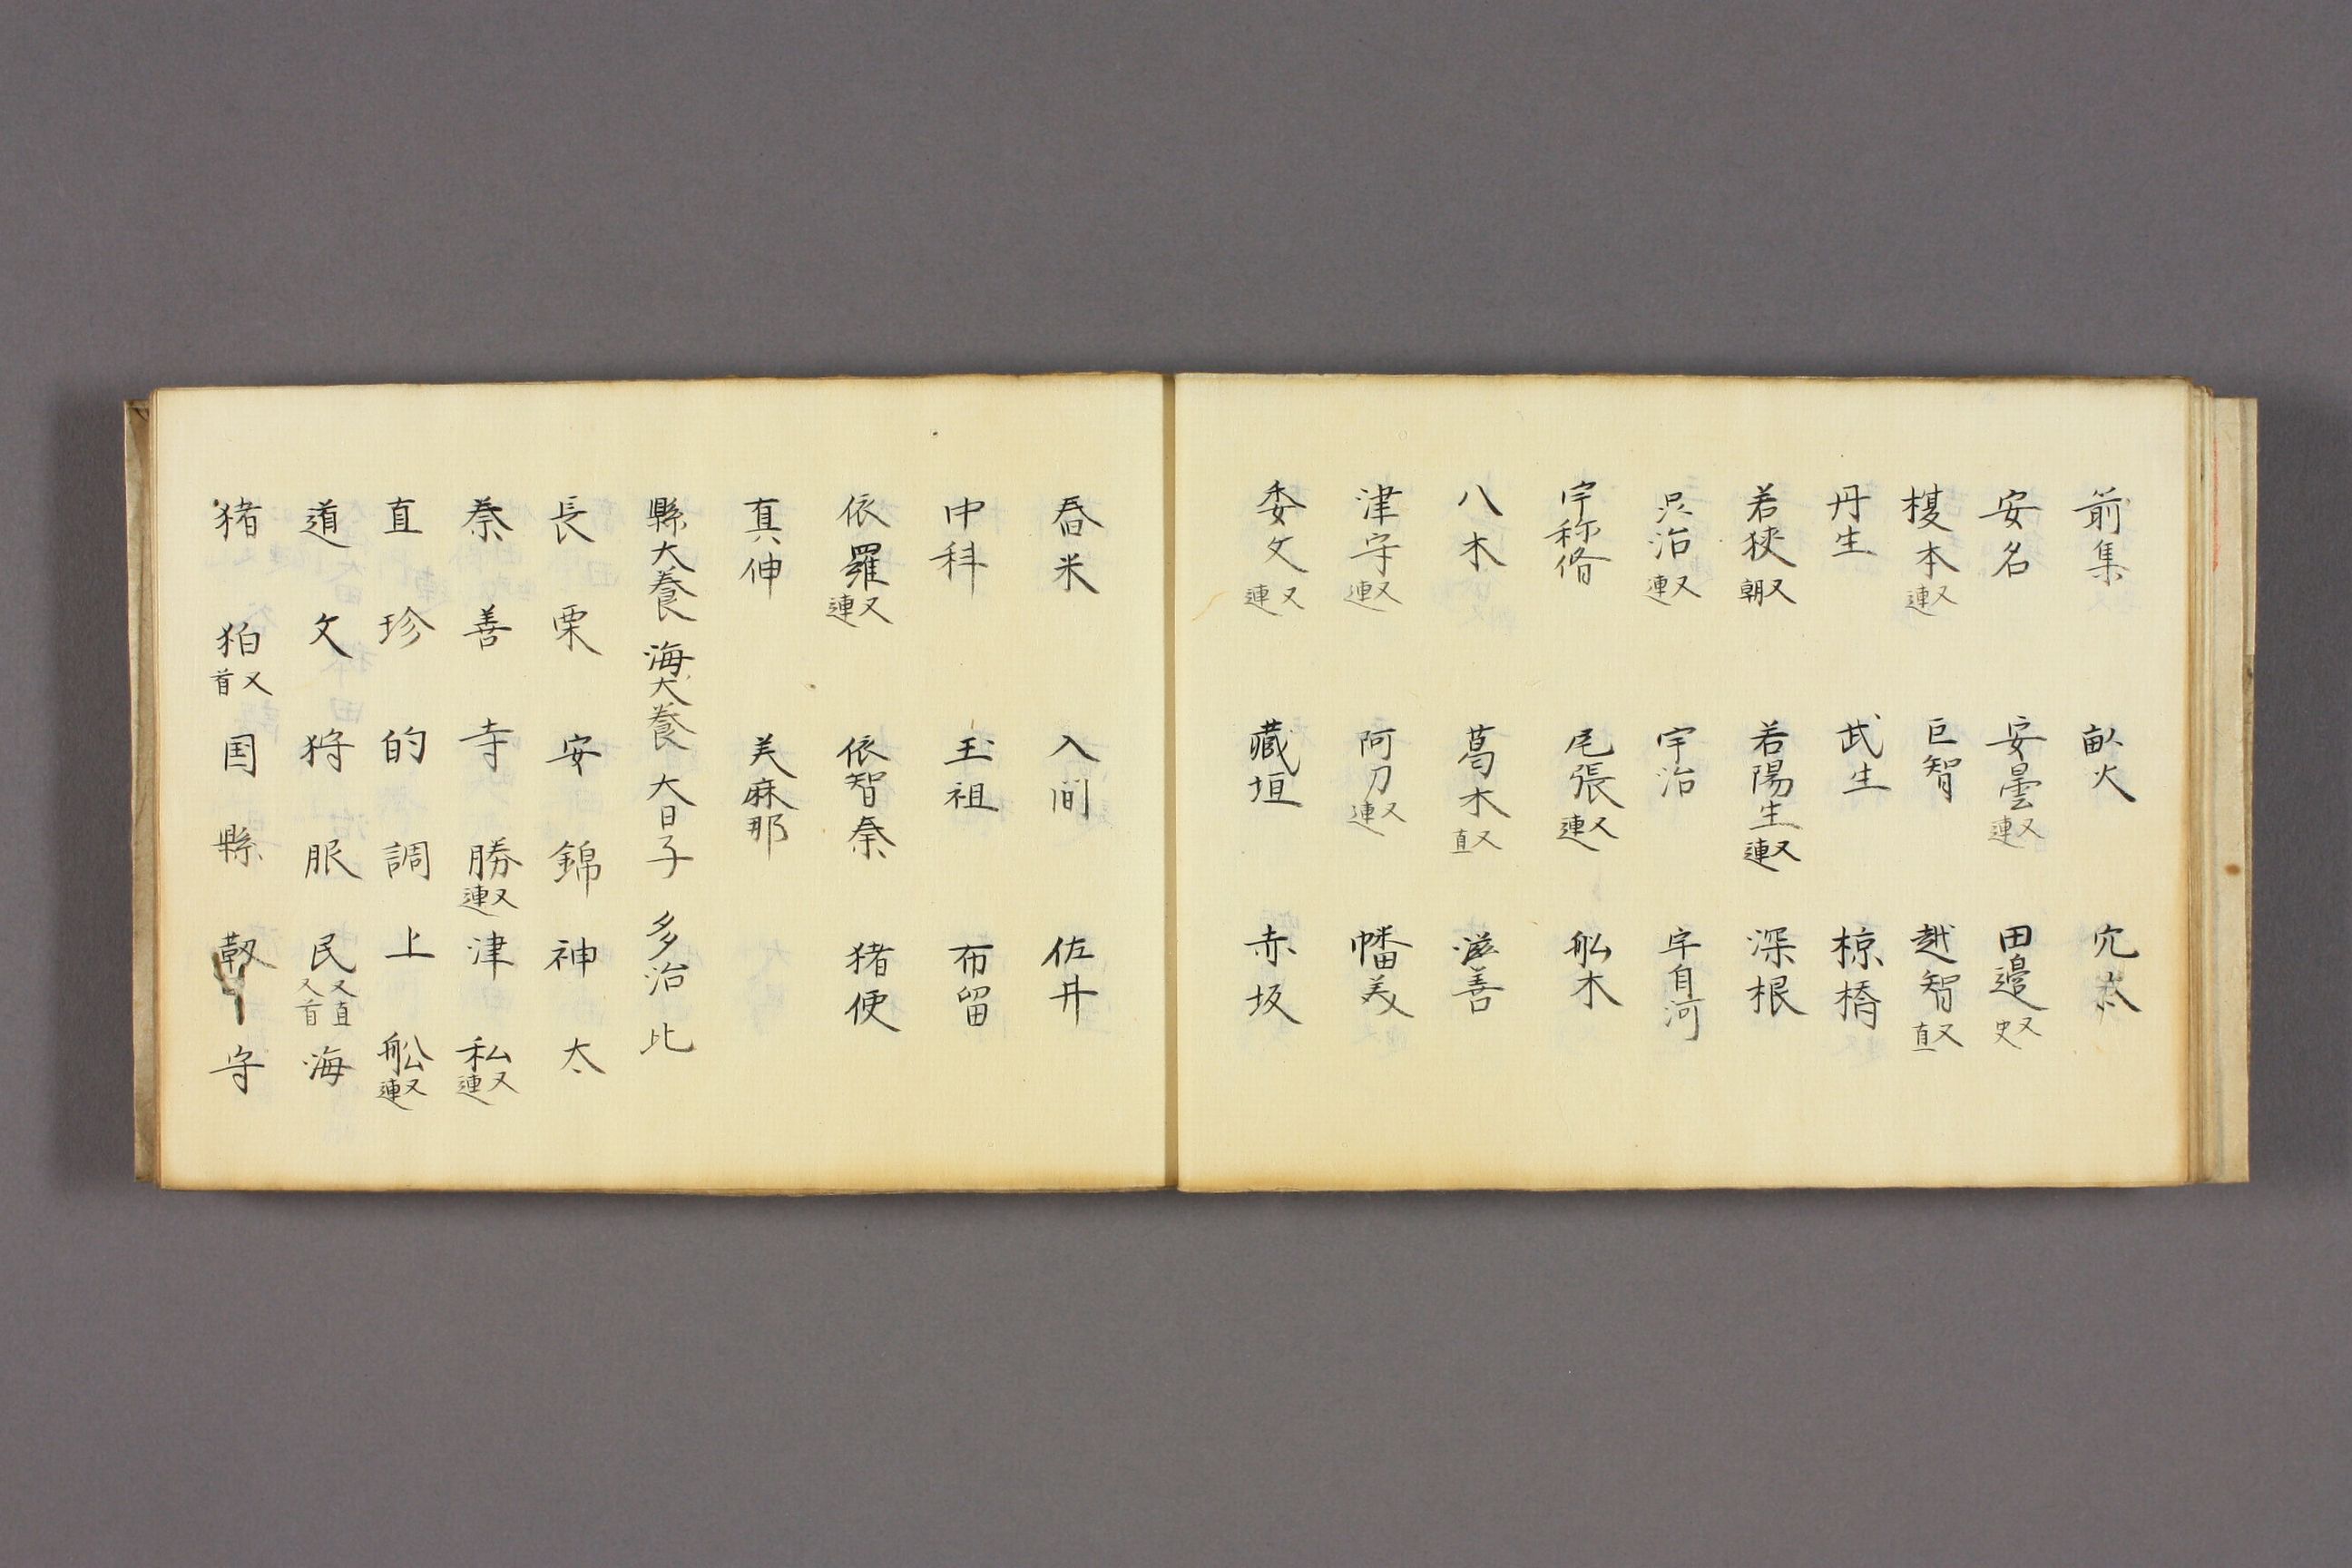 箭集 畝火 宍太
安名 安曇又連 田邉又史
榎本又連 巨智 越智又直
丹生 武生 椋橋
若狭又朝 若陽生又連 深根
呉治又連 宇治 宇自河
宇称俻 尾張又連 舩木
八木 葛木又直 滋善
津守又連 阿刀又連 幡美
委文又連 蔵垣 赤坂
舂米 入間 佐井
中科 玉祖 布留
依羅又連 依智秦 猪使
真神 美麻那
縣犬養 海犬養 大日子 多治比
長 栗 安 錦 神 太
秦 善 寺 勝又連 津 私又連
直 珍 的 調 上 舩又連
道 文 狩 服 民又直又首 海
猪 狛又首 国 縣 靱 守